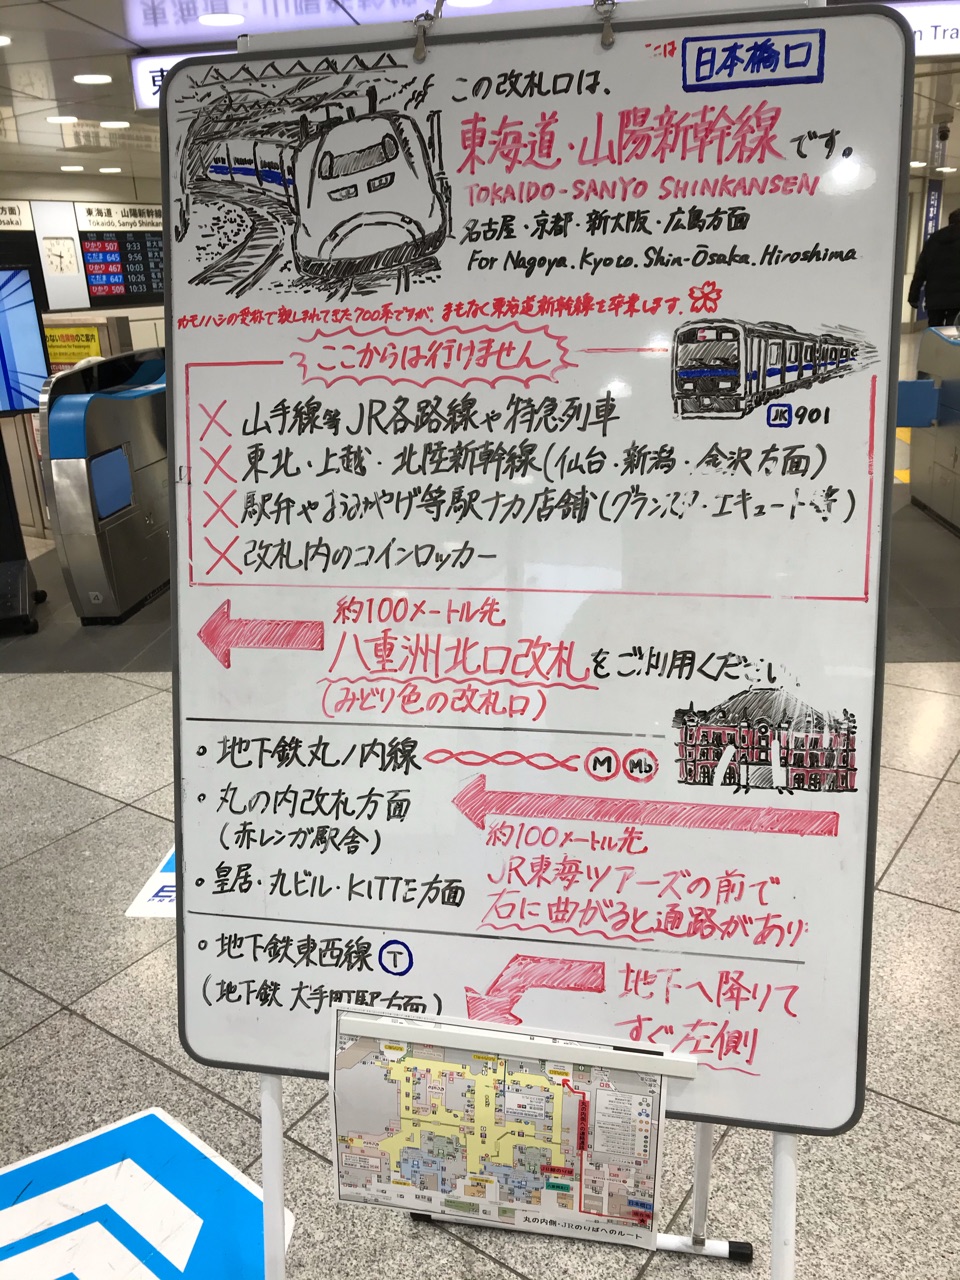 ここは 日本橋口
この改札口は、
東海道・山陽新幹線です。
TOKAIDO-SANYO SHINKANSEN
名古屋・京都・新大阪・広島方面
For Nagoya. Kyoto. Shin-Ōsaka. Hiroshima
カモノハシの愛称で親しまれてきた700系ですが、まもなく東海道新幹線を卒業します。
ここからは行けません
JK 901
× 山手線等JR各路線や特急列車
× 東北・上越・北陸新幹線(仙台・新潟・金沢方面)
× 駅弁やおみやげ等駅ナカ店舗(グランスタ・エキュート等)
× 改札内のコインロッカー
約100メートル先
八重洲北口改札をご利用ください
(みどり色の改札口)
・地下鉄丸ノ内線 M Mb
・丸の内改札方面
(赤レンガ駅舎)
・皇居・丸ビル・KITTE方面
約100メートル先
JR東海ツアーズの前で
右に曲がると通路があり
・地下鉄東西線 T
(地下鉄 大手町駅方面)
地下へ降りて
すぐ左側
丸の内側・JRのりばへのルート
東海道・山陽新幹線
Tōkaidō, Sanyō Shinkan
ひかり 507 9:33
こだま 645 9:56
ひかり 467 10:03
こだま 647 10:26
ひかり 509 10:33